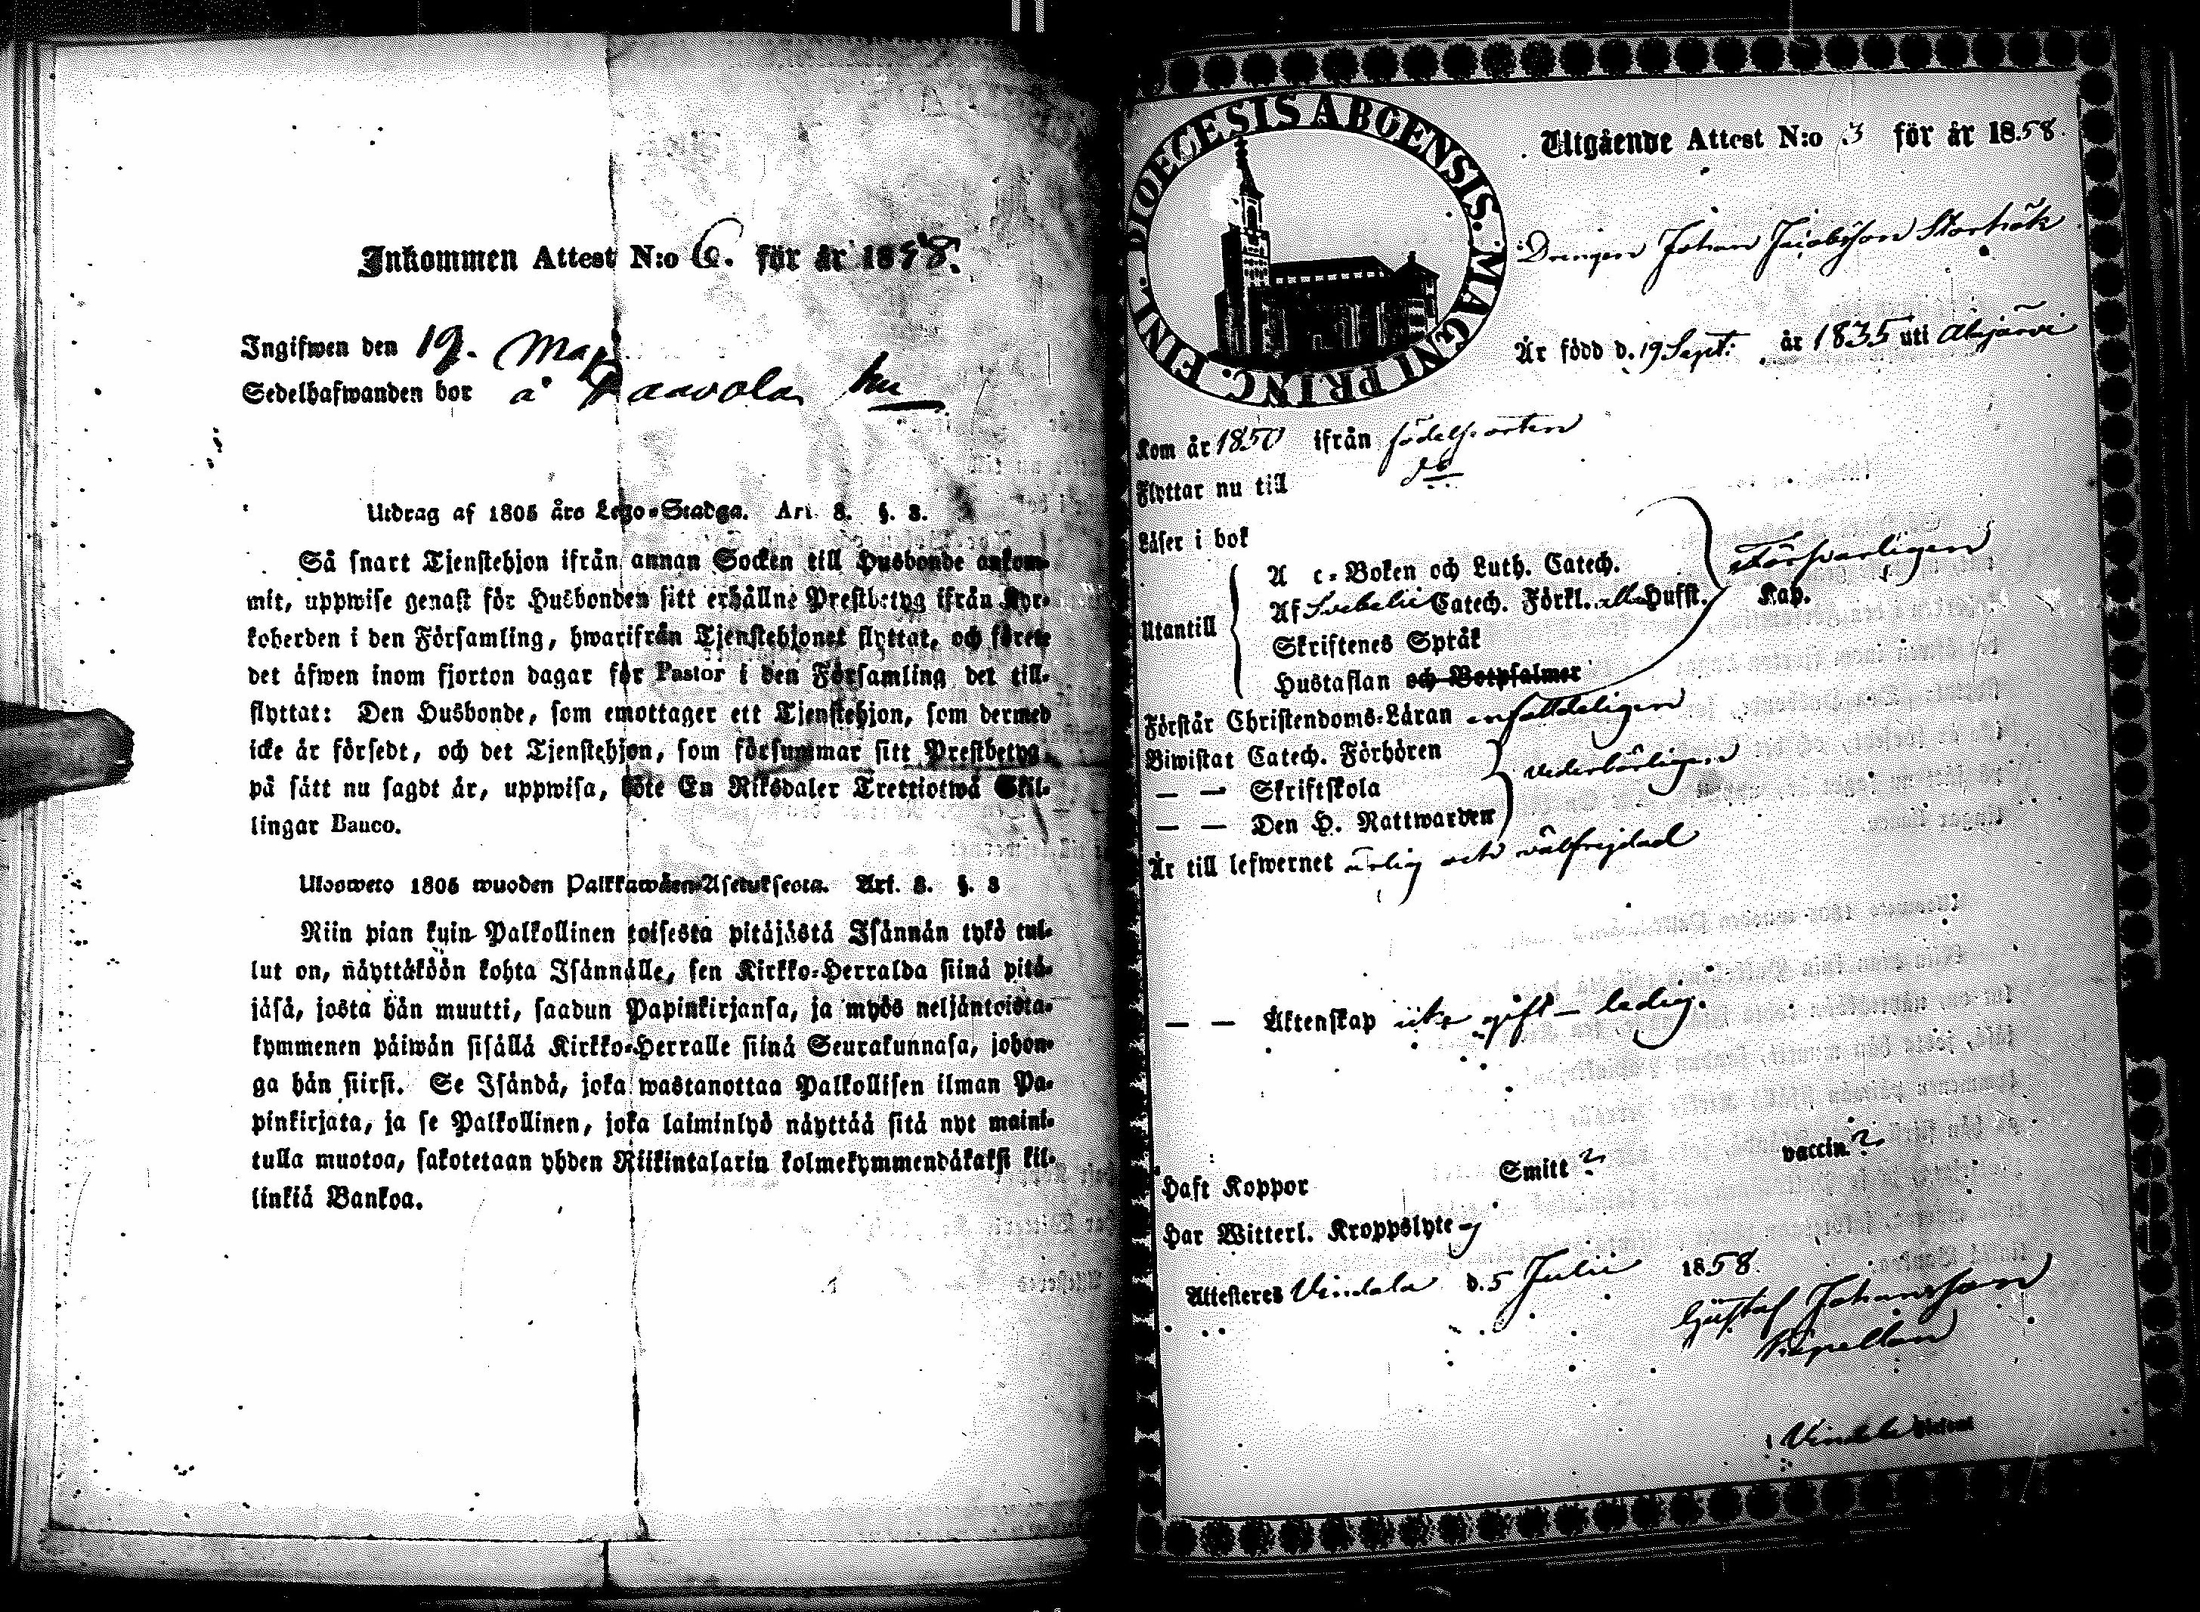 Inkommen Attest N:o 6. för år 1858.
Ingifwen den 19. Maj
Sedelhafwanden bor å Paavola hm
Utdrag af 1805 års Lego-Stadga. Art. 8. §. 3.
Så snart Tjenstehjon ifrån annan Socken till Husbonde ankom-
mit, uppwise genast för Husbonden sitt erhållne Prestbetyg ifrån Kyr-
koherden i den Församling, hwarifrån Tjenstehjonet flyttat, och förete
det äfwen inom fjorton dagar för Pastor i den Församling det till-
flyttat: Den Husbonde, som emottager ett Tjenstehjon, som dermed
icke är försedt, och det Tjenstehjon, som försummar sitt Prestbetyg,
på sätt nu sagdt är, uppwisa, böte En Riksdaler Trettiotwå Skil-
lingar Banco.
Ulosweto 1805 wuoden Palkkawäen-Asetuksesta. Art. 8. §. 3
Niin pian kuin Palkollinen toisesta pitäjästä Isännän tykö tul-
lut on, näyttäköön kohta Isännälle, sen Kirkko-Herralda siinä pitä-
jäsä, josta hän muutti, saadun Papinkirjansa, ja myös neljäntoista-
kymmenen päiwän sisällä Kirkko-Herralle siinä Seurakunnasa, johon-
ga hän siirsi. Se Isändä, joka wastanottaa Palkollisen ilman Pa-
pinkirjata, ja se Palkollinen, joka laiminlyö näyttää sitä nyt maini-
tulla muotoa, sakotetaan yhden Riikintalarin kolmekymmendäkaksi kil-
linkiä Bankoa.
DIOECESIS ABOENSIS. MAGNI PRINC. FINL.
Utgående Attest N:o 3 för år 1858.
Drengen Johan Jacobsson Storbäk
Är född d. 19 Sept: år 1835 uti Alajärvi
Kom år 1850 ifrån födelseorten
Flyttar nu till do
Läser i bok
A c-Boken och Luth. Catech.
Försvarligen
Af Svebelii Catech. Förkl. alla Hufst. Kap.
Utantill
Skriftenes Språk
Hustaflan och Botpsalmer
Förstår Christendoms-Läran enfalldeligen
Biwistat Catech. Förhören
vederbörligen
— — Skriftskola
— — Den H. Nattwarden
Är till lefwernet ärlig och välfrejdad
— — Äktenskap icke gift – ledig.
Haft Koppor Smitt ? vaccin. ?
Har Witterl. Kroppslyte ej
Attesteres Vindala d. 5 Julii 1858.
Gustaf Johansson
Kapellan
Vindala